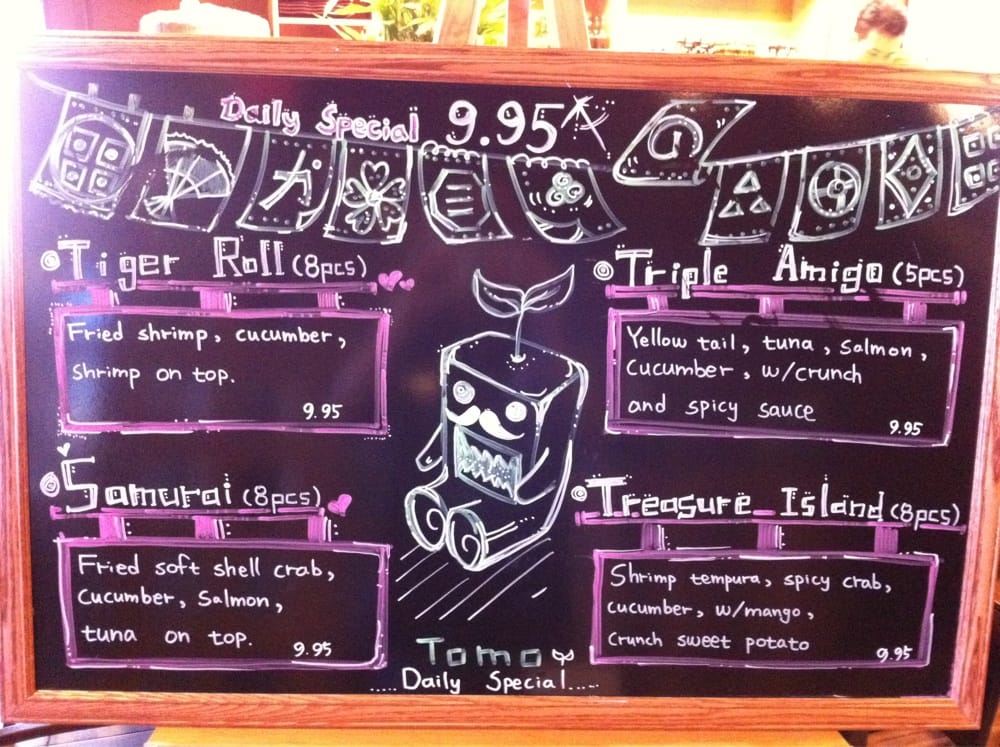 Daily Special 9.95
カ
Tiger Roll (8pcs)
Fried shrimp, cucumber,
shrimp on top.
9.95
Triple Amigo (5pcs)
Yellow tail, tuna, salmon,
cucumber, w/crunch
and spicy sauce
9.95
Samurai (8pcs)
Fried soft shell crab,
cucumber, salmon,
tuna on top.
9.95
Treasure Island (8pcs)
Shrimp tempura, spicy crab,
cucumber, w/mango,
crunch sweet potato
9.95
Tomo
.....Daily Special.....